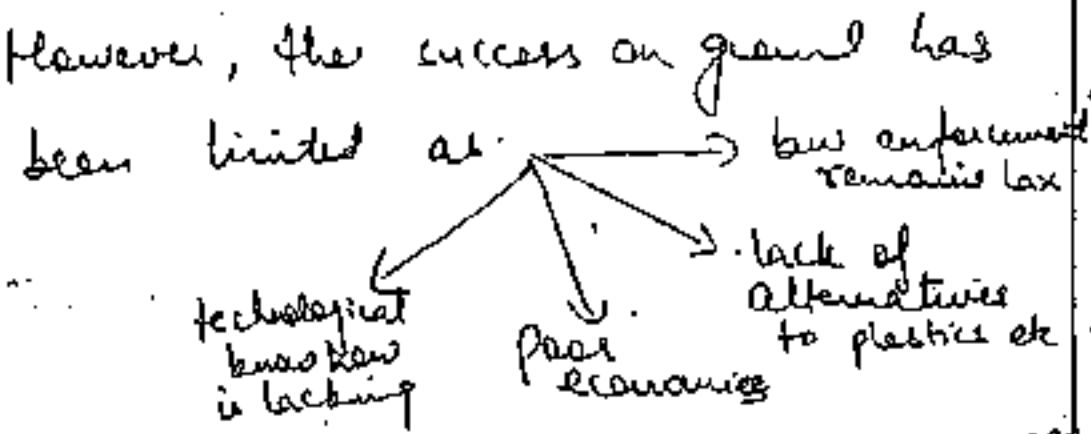 However, the success on ground has
been limited as
law enforcement
remains lax
lack of
alternatives
to plastics etc
technological
know how
is lacking
Poor
economies